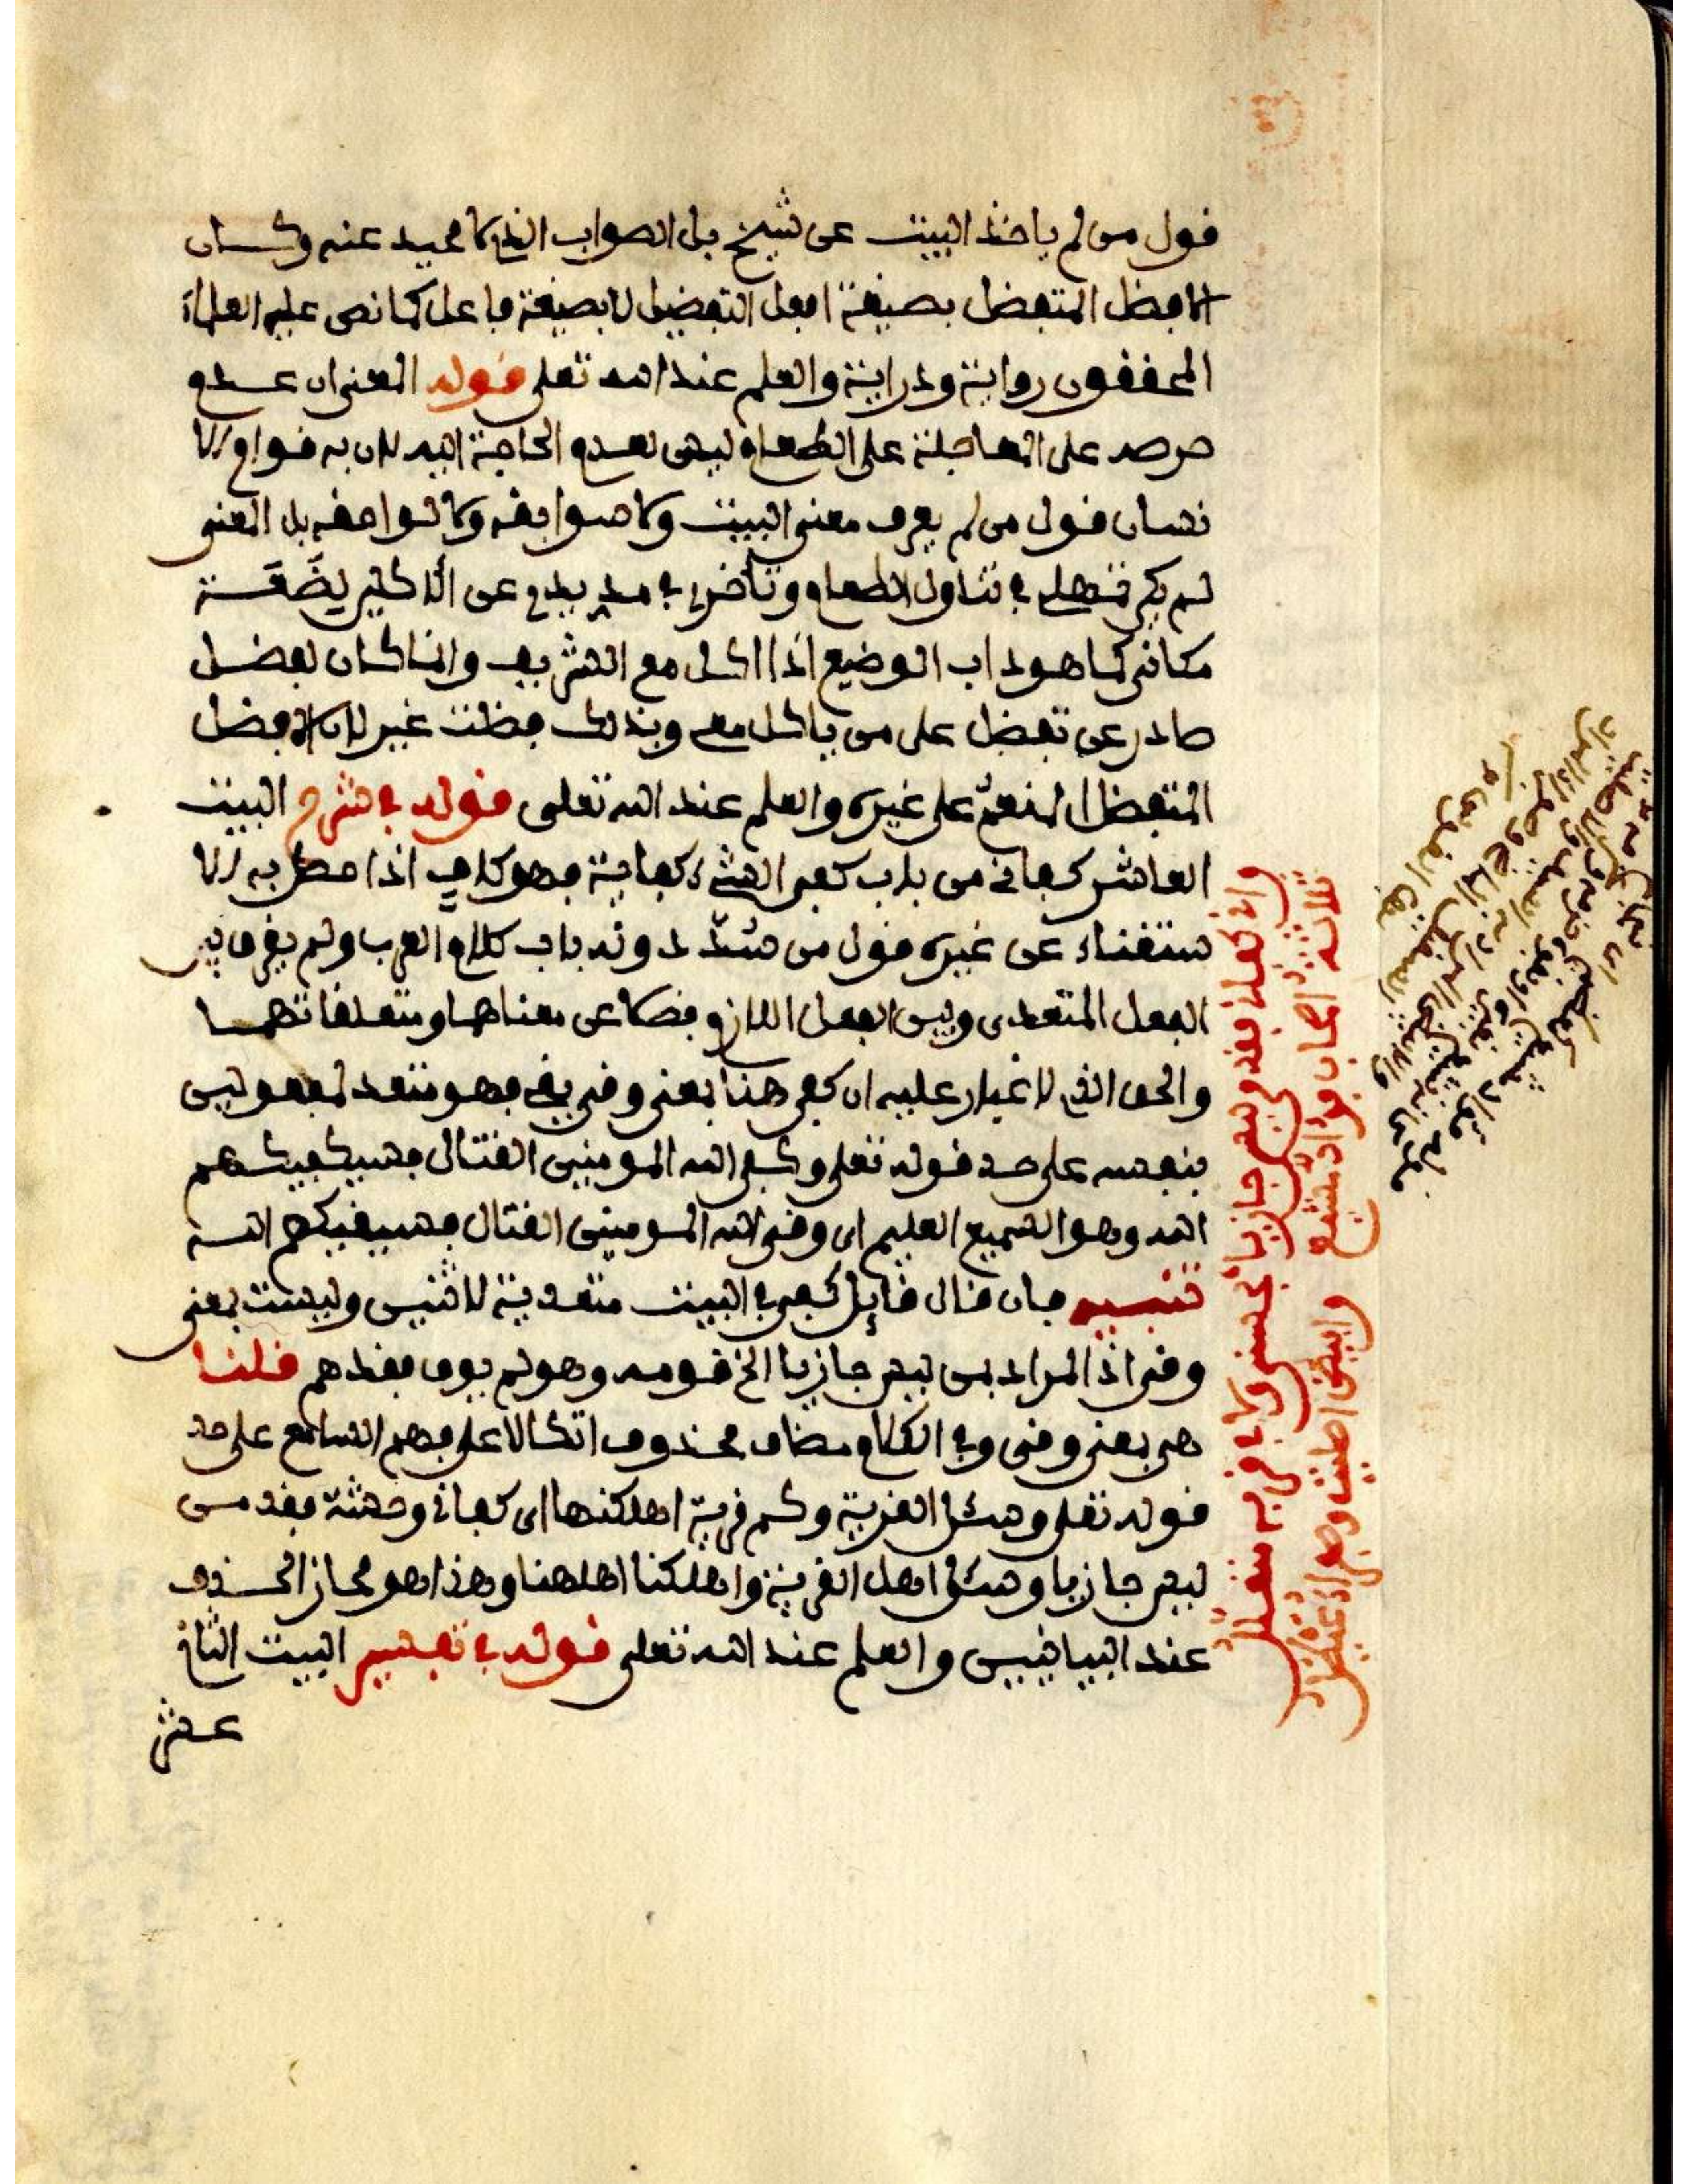 قول من لم ياخذ البيت عن شيخ بل الصواب الذي لا محيد عنه وكان
الافضل المتفضل بصيغة افعل التفضيل لا بصيغة فاعل كما نص عليه العلماء
المحققون رواية ودراية والعلم عند الله تعلى قوله المعنى ان عدم
حرصه على العاجلة على الطعام ليس لعدم الحاجة اليه لان به قوام الا
نسان قول من لم يعرف معنى البيت ولا صوابقه ولا لواحقه بل المعنى
لم يكن تمهلى في تناول الطعام وتأخرى في مد يدى عن الاكثير
مكانى كما هو داب الوضيع اذا اكل مع الشريف وانما كان لفضل
صادر عن تفضل على من ياكل معى وبذلك فظلت غيرى لان الافضل
المتفظل المنعم على غيره والعلم عند الله تعلى قوله في شرح البيت
العاشر كفانى من باب كفى الشيء كفاية فهو كاف اذا حصل به الا
ستغناء عن غيره قول من سد دونه باب كلام العرب ولم يفرق بين
الفعل المتعدى وبين الفعل اللازم فضلا عن معناهما ومتعلقاتهما
والحق الذى لا غبار عليه ان كفى هنا بمعنى وقى يقى فهو متعد لمفعولين
بنفسه على حد قوله تعلى وكفى الله المومنين القتال فسيكفيكهم
الله وهو السميع العليم اى وقى الله المومنين القتال فسيقيكهم الله
تنبيه فان قال قايل كفى في البيت متعدية لاثنين وليست بمعنى
وقى اذ المراد بمن ليس جازيا الخ قومه وهو لم يوق فقدهم قلنا
هى بمعنى وقى وفي الكلام مضاف محذوف اتكالا على فهم السامع على حد
قوله تعلى وسئل القرية وكم قرية اهلكنها اى كفانى وحشة فقد من
ليس جازيا وسئل اهل القرية واهلكنا اهلها وهذا هو مجاز الحذف
عند البيانيين والعلم عند الله تعلى قوله في تفسير البيت الثانى
عشر
وانى كفانى فقد من ليس جازيا بحسنى ولا في قربه متعلل
ثلاثة اصحاب فؤاد مشيع وابيض اصليت وصفراء عيطل